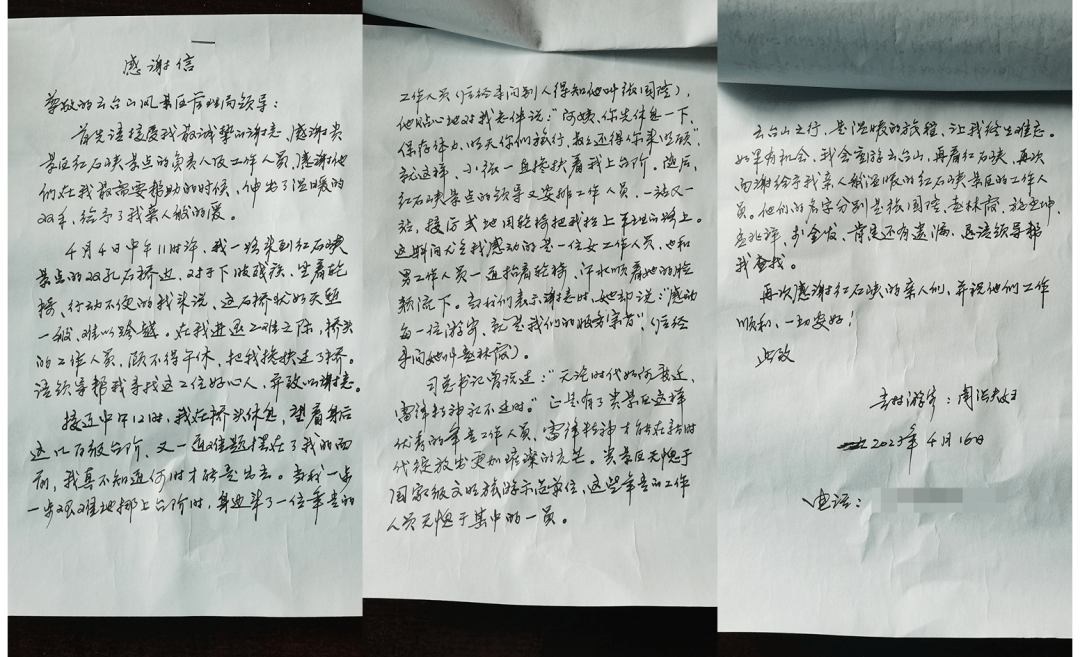 感谢信
尊敬的云台山风景区管理局领导：
首先请接受我最诚挚的谢意，感谢贵
景区红石峡景点的负责人及工作人员，感谢他
们在我最需要帮助的时候，伸出了温暖的
双手，给予了我亲人般的爱。
4月4日中午11时许，我一路来到红石峡
景点的双孔石桥边，对于下肢残疾、坐着轮
椅、行动不便的我来说，这石桥状如天堑
一般，难以跨越。在我进退二难之际，桥头
的工作人员，顾不得午休，把我搀扶过了桥。
请领导帮我寻找这二位好心人，并致以谢意。
接近中午12时，我在桥头休息，望着身后
这几百级台阶，又一道难题摆在了我的面
前，我真不知道何时才能走出去。当我一步
一步艰难地挪上台阶时，身边来了一位年青的
工作人员（后经寻问别人得知他叫张国控），
他贴心地对我老伴说：“阿姨，你先休息一下，
保存体力，明天你们旅行，叔还得你来照顾”
就这样，小张一直搀扶着我上台阶。随后，
红石峡景点的领导又安排工作人员，一站又一
站，接力式地用轮椅把我抬上平坦的路上。
这期间尤令我感动的是一位女工作人员，也和
男工作人员一道抬着轮椅，汗水顺着她的脸
颊流下。当我们表示谢意时，她却说：“感动
每一位游客，就是我们的服务宗旨”，（后经
寻问她叫赵林霞）。
习总书记曾说过：“无论时代如何变迁，
雷锋精神永不过时。”正是有了贵景区这样
优秀的年青工作人员，雷锋精神才能在新时
代绽放出更加璀璨的光芒。贵景区无愧于
国家级文明旅游示范单位，这些年青的工作
人员无愧于其中的一员。
云台山之行，是温暖的旅程，让我终生难忘。
如果有机会，我会重游云台山，再看红石峡，再次
面谢给予我亲人般温暖的红石峡景区的工作人
员。他们的名字分别是张国控、赵林霞、
肯定还有遗漏，恳请领导帮
我查找。
再次感谢红石峡的亲人们，并祝他们工作
顺利，一切安好！
此致
吉林游客：周浩夫妇
2023年4月16日
电话：